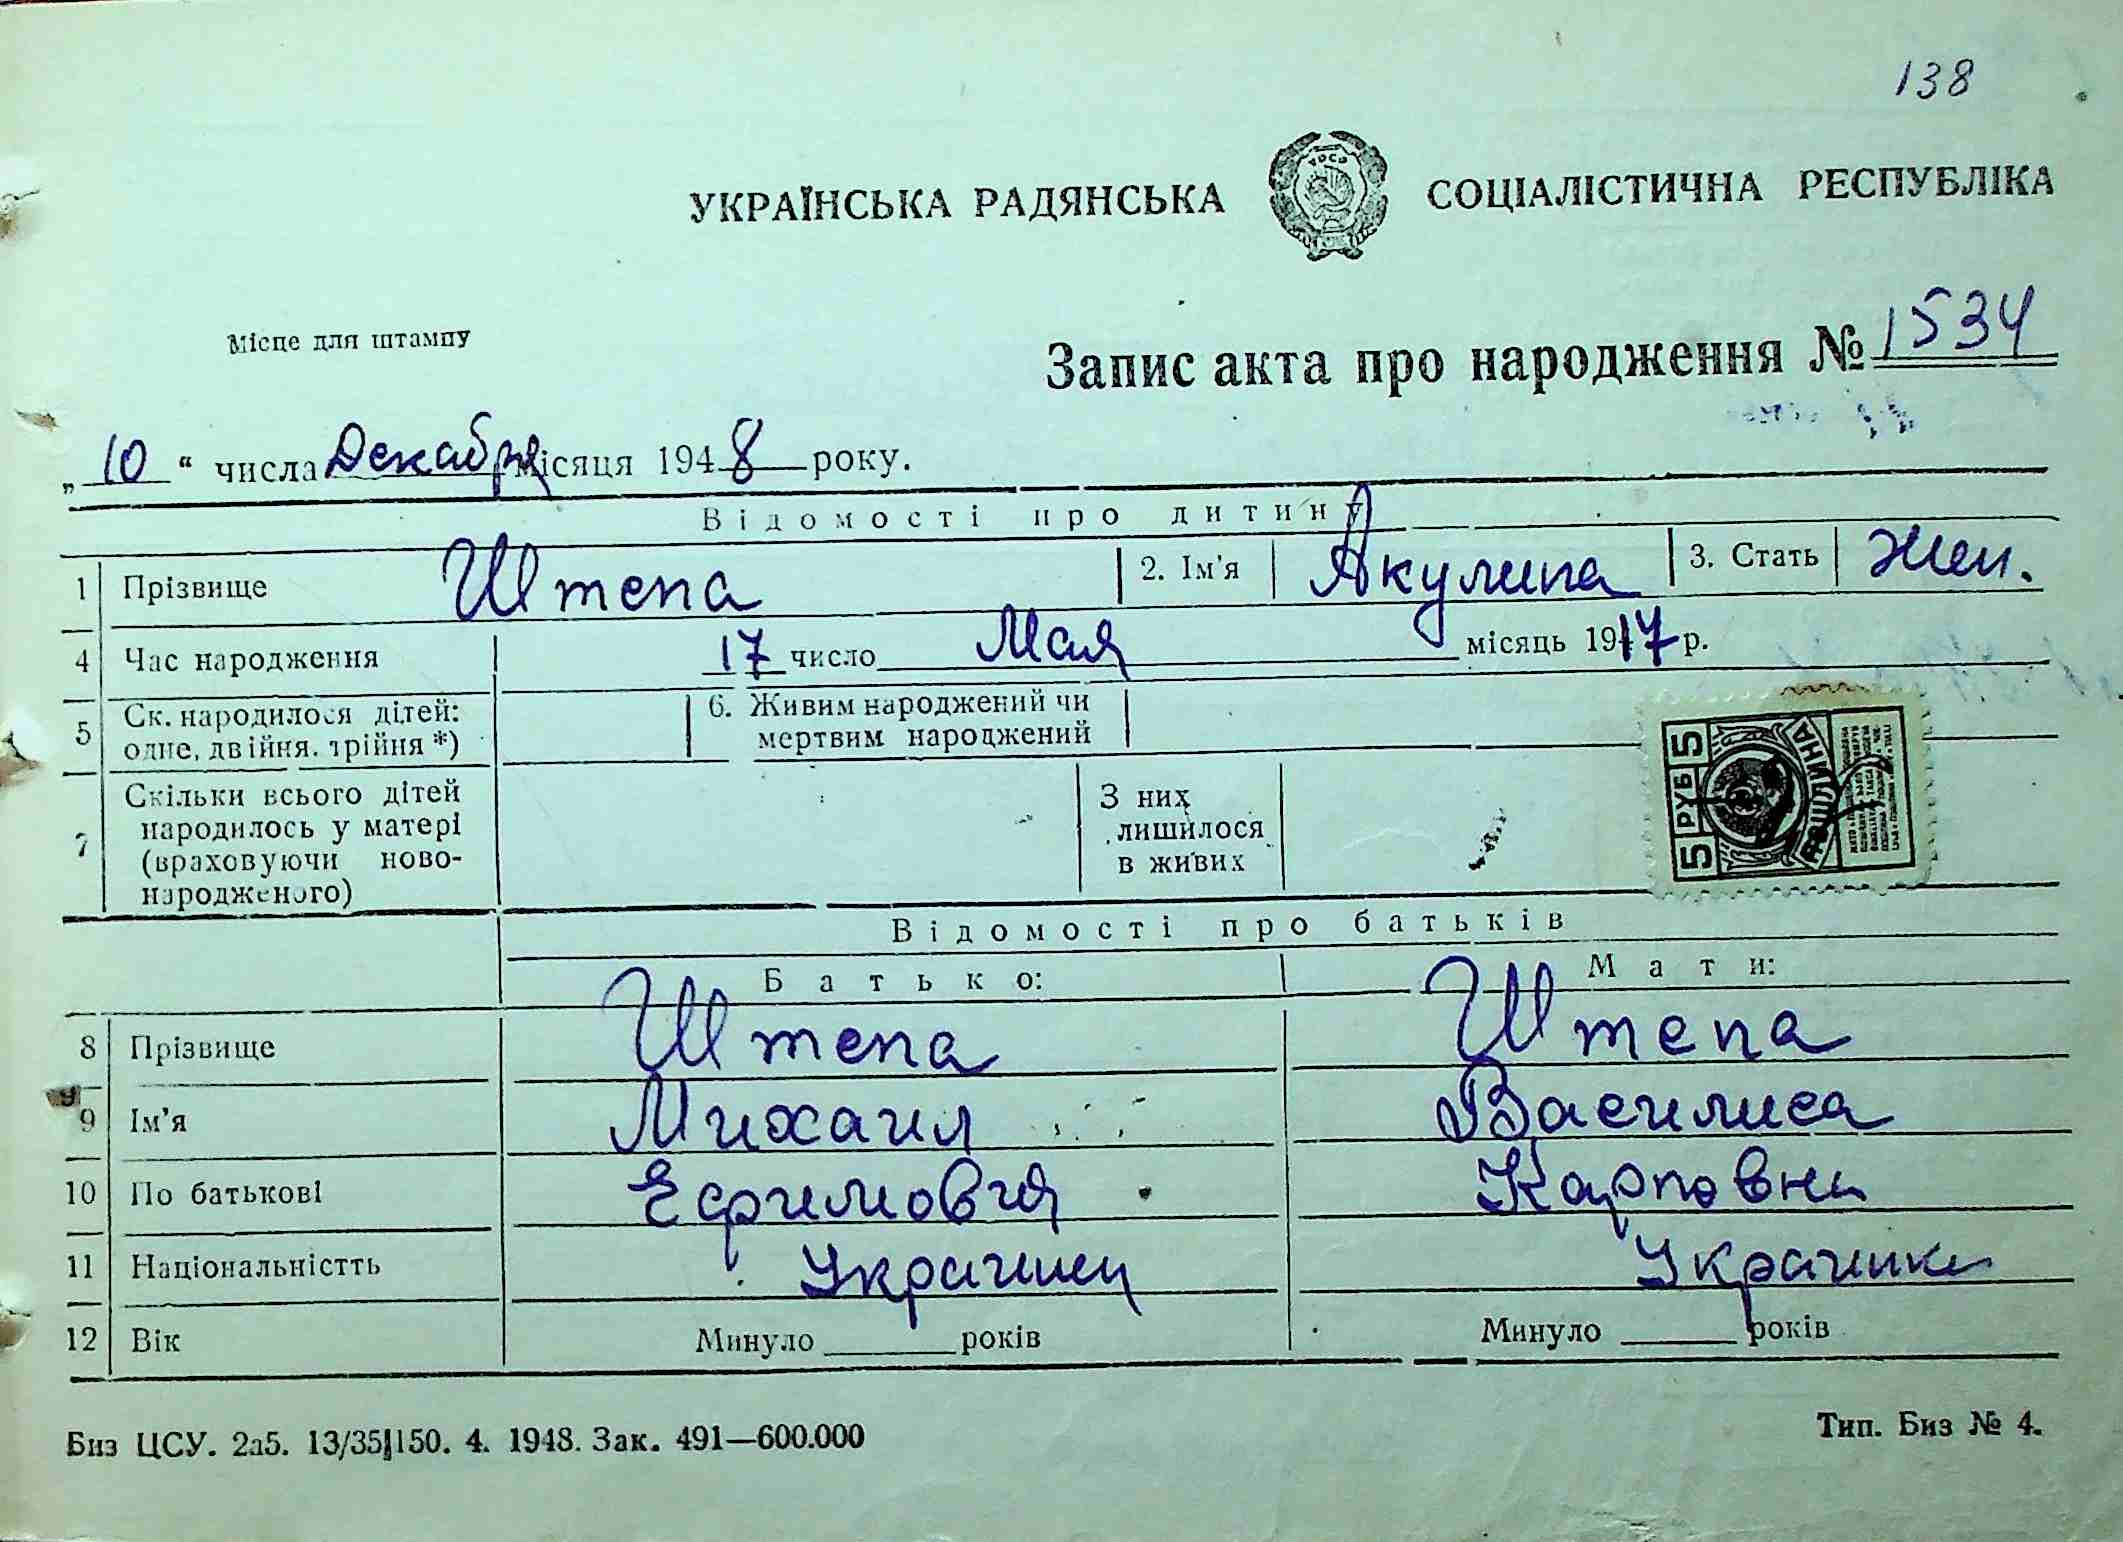 138
УКРАЇНСЬКА РАДЯНСЬКА СОЦІАЛІСТИЧНА РЕСПУБЛІКА
Місце для штампу
Запис акта про народження № 1534
„ 10 “ числа Декабря місяця 1948 року.
Відомості про дитину
1 Прізвище Штепа 2. Ім'я Акулина 3. Стать жен.
4 Час народження 17 число Мая місяць 1917 р.
5 Ск. народилося дітей: одне, двійня, трійня *) 6. Живим народжений чи мертвим народжений
7 Скільки всього дітей народилось у матері (враховуючи ново-народженого) З них лишилося в живих
5 РУБ 5
ПОШЛИНА
Відомості про батьків
Батько: Мати:
8 Прізвище Штепа Штепа
9 Ім'я Михаил Василиса
10 По батькові Ефимович Карповна
11 Національністть Украинец Украинка
12 Вік Минуло ____ років Минуло ____ років
Биз ЦСУ. 2а5. 13/35|150. 4. 1948. Зак. 491—600.000 Тип. Биз № 4.